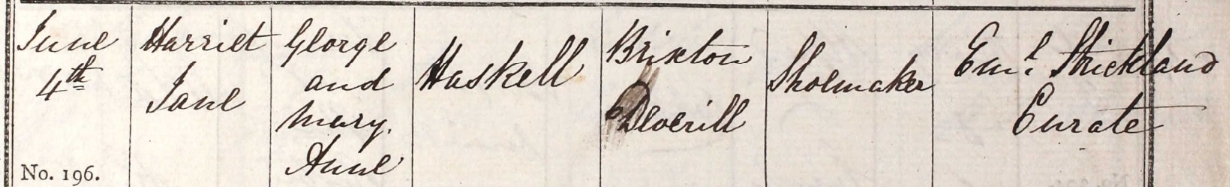 June
4th
No. 196.
Harriet
Jane
George
and
Mary.
Anne
Haskell
Brixton
Deverill
Shoemaker
Eml. Strickland
Curate